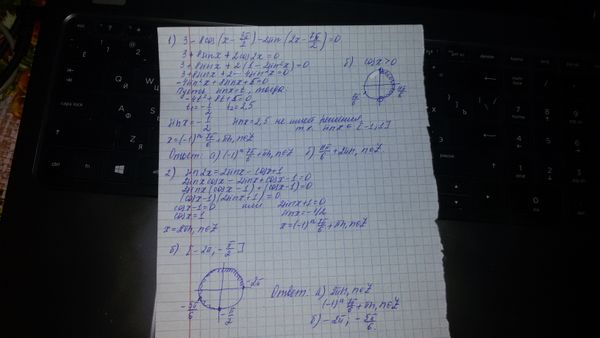 1) 3 - 8cos(x - 3π/2) - 2sin(2x - 7π/2) = 0
3 + 8sinx + 2cos2x = 0
3 + 8sinx + 2(1 - 2sin²x) = 0
3 + 8sinx + 2 - 4sin²x = 0
-4sin²x + 8sinx + 5 = 0
Пусть sinx = t, тогда
-4t² + 8t + 5 = 0
t₁ = -1/2 t₂ = 2,5
sinx = -1/2 sinx = 2,5 не имеет решений,
т.к. sinx ∈ [-1; 1]
x = (-1)ⁿ 7π/6 + πn, n∈Z
б) cosx > 0
Ответ: а) (-1)ⁿ 7π/6 + πn, n∈Z б) + 2πn, n∈Z
2) sin2x - 2sinx - cosx + 1
2sinxcosx - 2sinx + cosx - 1 = 0
2sinx(cosx - 1) + (cosx - 1) = 0
(cosx - 1)(2sinx + 1) = 0
cosx - 1 = 0 или 2sinx + 1 = 0
cosx = 1 sinx = -1/2
x = 2πn, n∈Z x = (-1)ⁿ 7π/6 + πn, n∈Z
б) [-2π; -π/2]
-2π
-5π/6
-π/2
Ответ: а) 2πn, n∈Z
(-1)ⁿ 7π/6 + πn, n∈Z
б) -2π; -5π/6.